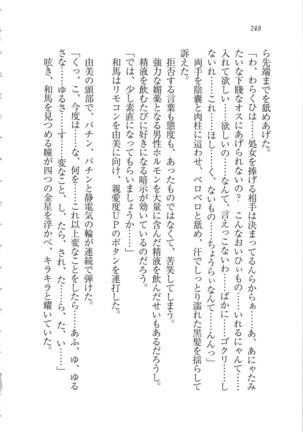 248
ら先端までを舐めあげた。
「わ、わらくひは……処女を捧げる相手は決まってるんらからぁ……あ、あにゃたみ
たいな下賤なオスにあげられないの？ こんなおい
入れて欲しい……欲しいの……なんて、言えっこないわ……ばかに……ゴクリ……し
ないで……これ……ほしく、ないもの……ちょうらぃなんてぇ……てんんっ」
両手を陰嚢と肉柱に這わせ、ベロベロと舐め、汗でしっとり濡れた黒髪を揺らして
訴えた。
拒否する言葉も態度も、あったものではなくて、苦笑してしまう。
強力な媚薬となる男性ホルモンを大量に含んだ精液を飲んだせいもあるだろうし、
精液を飲むたびに好きになる暗示が効いているのだろう。
「では、少し素直になってもらいましょうか」
和馬はリモコンを由美に向け、親愛度ＵＰのボタンを連打した。
由美の頭部で、パチン、パチンと静電気の輪が連続で弾けた。
「くっ、こ、今度は……な、何を……これ以上変なことをしたら……あふ、ゆ、ゆる
さな……ゆるさ……す……変なこと、し、たら、され、た……ら、た、い……」
呟き、和馬を見つめる瞳が四つの金星を浮かべ、キラキラと耀いていた。